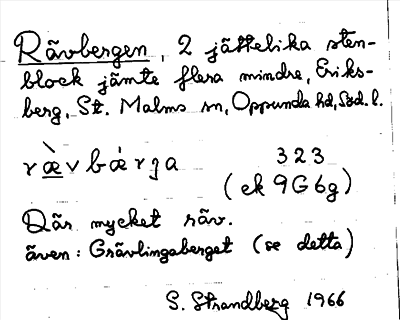 Rävbergen, 2 jättelika sten-
block jämte flera mindre, Eriks-
berg, St. Malms sn, Oppunda hd, Söd. l.
ræ̀vbæ̀rga 323
(ek 9G6g)
Där mycket räv.
även: Grävlingaberget (se detta)
S. Strandberg 1966